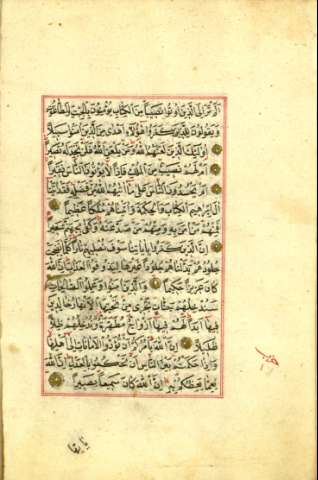 ألم تر إلى الذين أوتوا نصيبا من الكتاب يؤمنون بالجبت والطاغوت
ويقولون للذين كفروا هؤلاء أهدى من الذين آمنوا سبيلا
أولئك الذين لعنهم الله ومن يلعن الله فلن تجد له نصيرا
أم لهم نصيب من الملك فإذا لا يؤتون الناس نقيرا
أم يحسدون الناس على ما آتيهم الله من فضله فقد آتينا
آل إبراهيم الكتاب والحكمة وآتيناهم ملكا عظيما
فمنهم من آمن به ومنهم من صد عنه وكفى بجهنم سعيرا
إن الذين كفروا بآياتنا سوف نصليهم نارا كلما نضجت
جلودهم بدلناهم جلودا غيرها ليذوقوا العذاب إن الله
كان عزيزا حكيما والذين آمنوا وعملوا الصالحات
سندخلهم جنات تجري من تحتها الأنهار خالدين
فيها أبدا لهم فيها أزواج مطهرة وندخلهم ظلا
ظليلا إن الله يأمركم أن تؤدوا الأمانات إلى أهلها
وإذا حكمتم بين الناس أن تحكموا بالعدل إن الله
نعما يعظكم به إن الله كان سميعا بصيرا
حزب
يا أيها